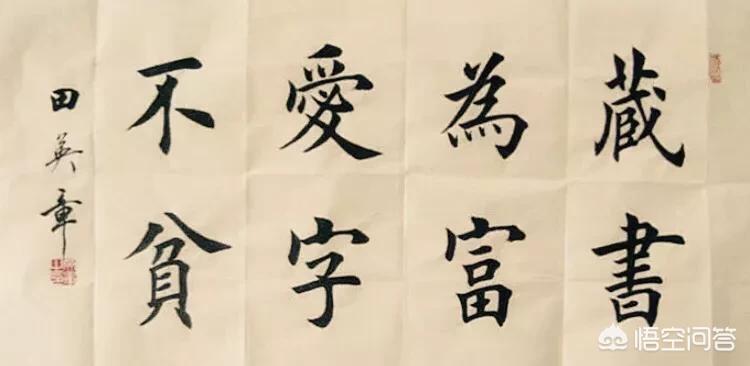 藏書
為富
愛字
不貧
田英章
悟空问答